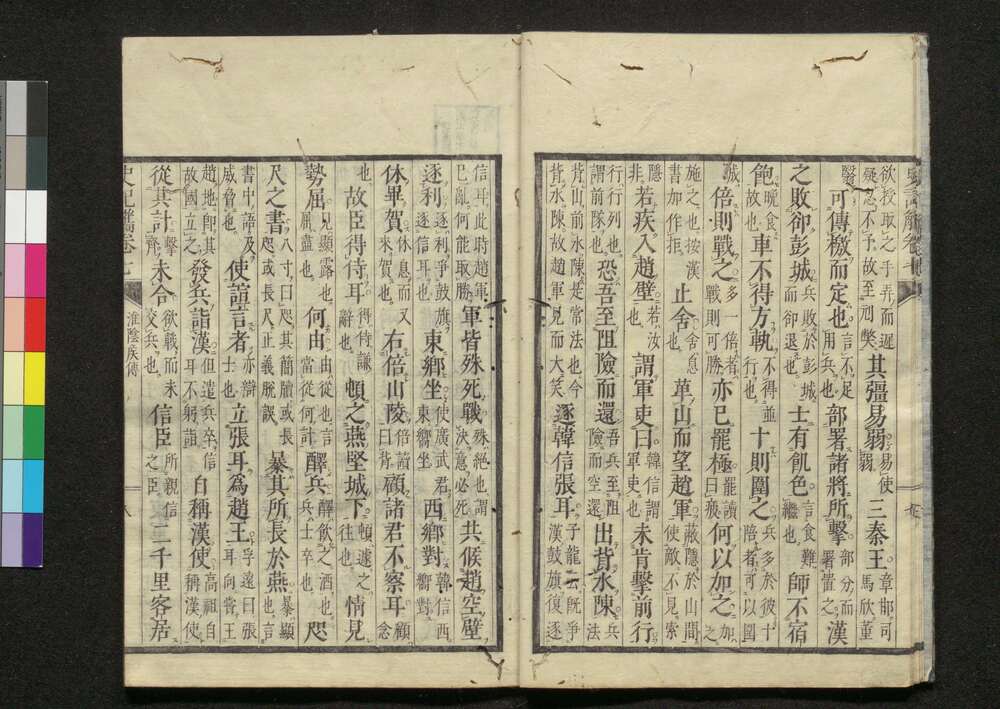 欲授取之手弄而遲疑忍不予故至刓獘 其彊易弱 易使弱 三秦王 章邯司馬欣董
翳 可傳檄而定也 言不足用兵也 部署諸將所擊 部分而署置之 漢
之敗卻彭城 兵敗於彭城而卻退也 士有飢色 言食難繼也 師不宿
飽 晚食故也 車不得方軌 不得並行也 十則圍之 兵多於彼十陪者可以圍
城 倍則戰之 多一倍者戰則可勝 亦已罷極 罷讀曰疲 何以加之 加之
施之也按漢書加作拒 止舍 舍息也 萆山而望趙軍 蔽隱於山間使敵不見索
隱非 若疾入趙壁 若汝也 謂軍吏曰 韓信謂軍吏也 未肯擊前行
行行列也謂前隊也 恐吾至阻險而還 吾兵至阻險而空還 出背水陳 兵法
背山前水陳是常法也今背水陳故趙軍見而大笑 逐韓信張耳 子龍云既爭漢鼓旗復逐
信耳此時趙軍已亂何能取勝 軍皆殊死戰 殊絕也謂決意必死 共候趙空壁
逐利 逐利爭鼓旗逐信耳也 東鄉坐 使廣武君東嚮坐 西鄉對 韓信西嚮對
休畢賀 休息而又來賀也 右倍山陵 倍讀曰背 顧諸君不察耳 顧念
也 故臣得侍耳 得侍謙辭也 頓之燕堅城下 頓遽之往也 情見
勢屈 見顯露也屈盡也 何由 由從也言當從何計 醳兵 醳飲之酒也兵士卒也 咫
尺之書 八寸曰咫其簡牘或長咫或長尺正義脫誤 暴其所長於燕 暴顯也言
書中諦及威脅也 使諠言者 亦辯士也 立張耳爲趙王 孚遠曰張耳向嘗王
趙地即其故國立之 發兵詣漢 但遣兵卒信耳不躬詣 自稱漢使 高祖自稱漢使
從其計 擊齊 未合 欲戰而未交兵也 信臣 所親信之臣 二千里客居
淮陰侯傳
八